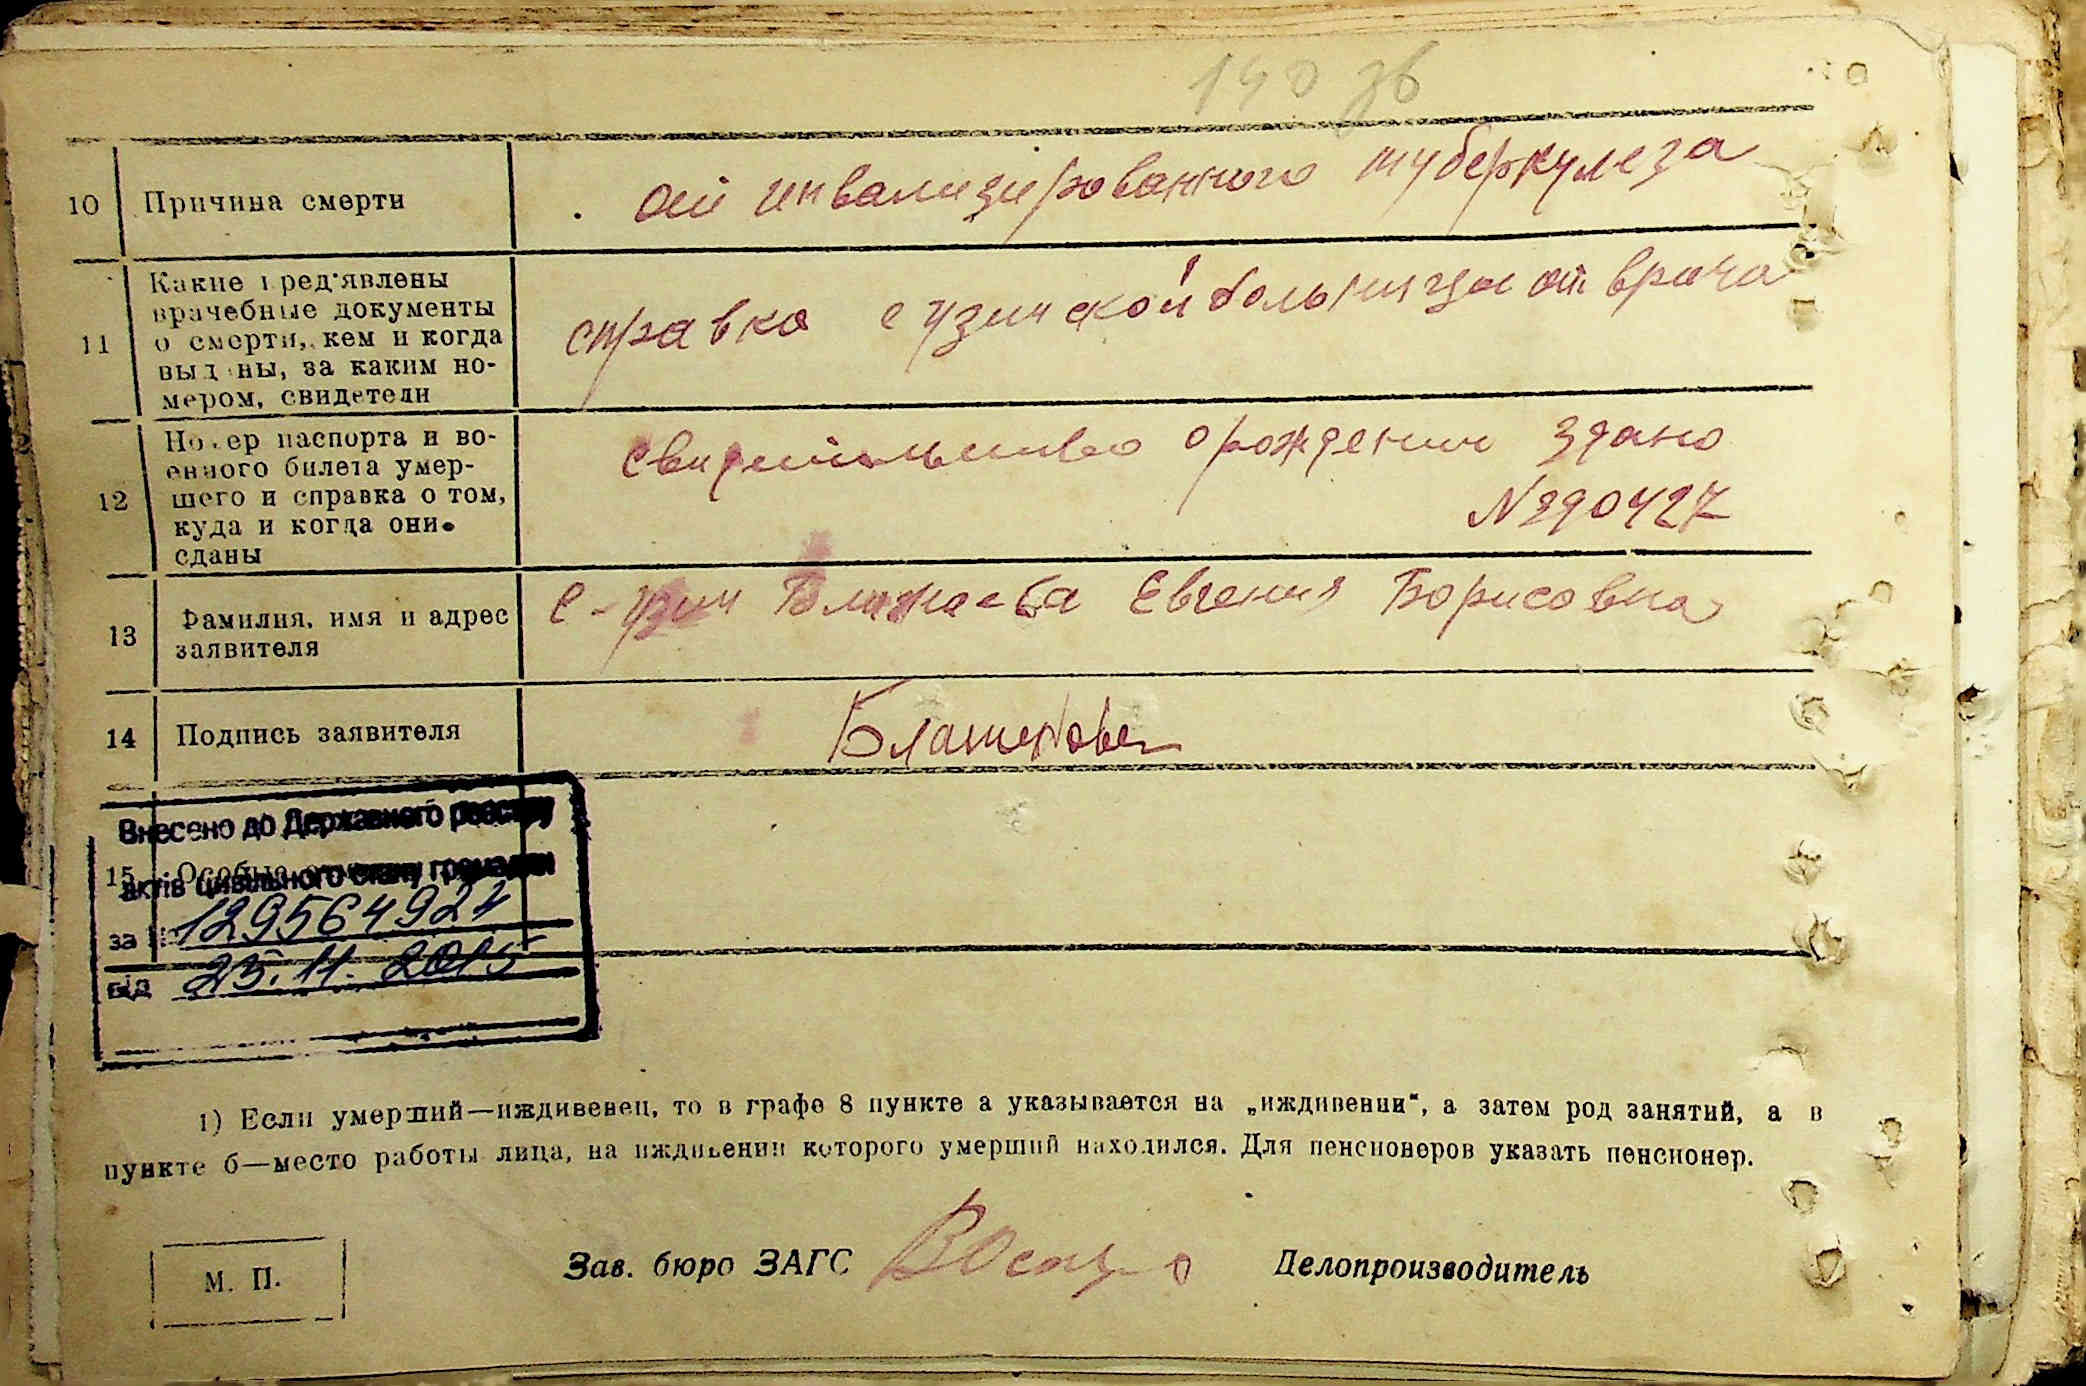 140 зв
10 Причина смерти
от инвализированного туберкулеза
11 Какие пред'явлены
врачебные документы
о смерти, кем и когда
выданы, за каким но-
мером, свидетели
справка сузинской больницы от врача
12 Номер паспорта и во-
енного билета умер-
шего и справка о том,
куда и когда они
сданы
свидетельство о рождении здано
N 990427
13 Фамилия, имя и адрес
заявителя
Евгения Борисовна
14 Подпись заявителя
Внесено до Державного реєстру
15 Особые
актів цивільного стану громадян
за № 129564924
від 25.11.2015
1) Если умерший—иждивенец, то в графе 8 пункте а указывается на „иждивении“, а затем род занятий, а в
пункте б—место работы лица, на иждивении которого умерший находился. Для пенсионеров указать пенсионер.
М. П.
Зав. бюро ЗАГС
Делопроизводитель